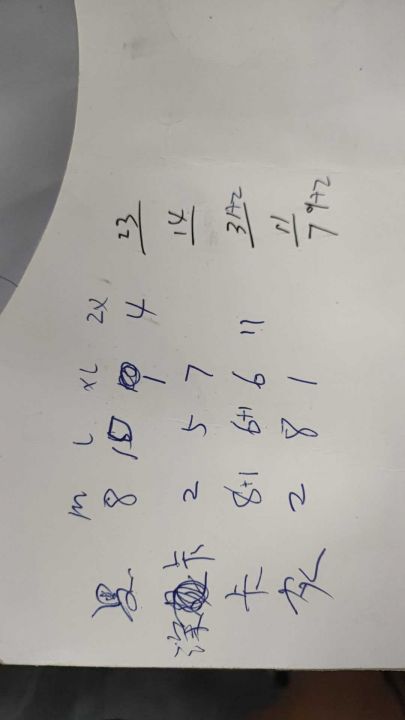 m L XL 2X
黑 8 10 1 4 23
深卡 2 5 7 14
卡 8+1 6+1 6 11 31+2
灰 2 8 1 11
79+2